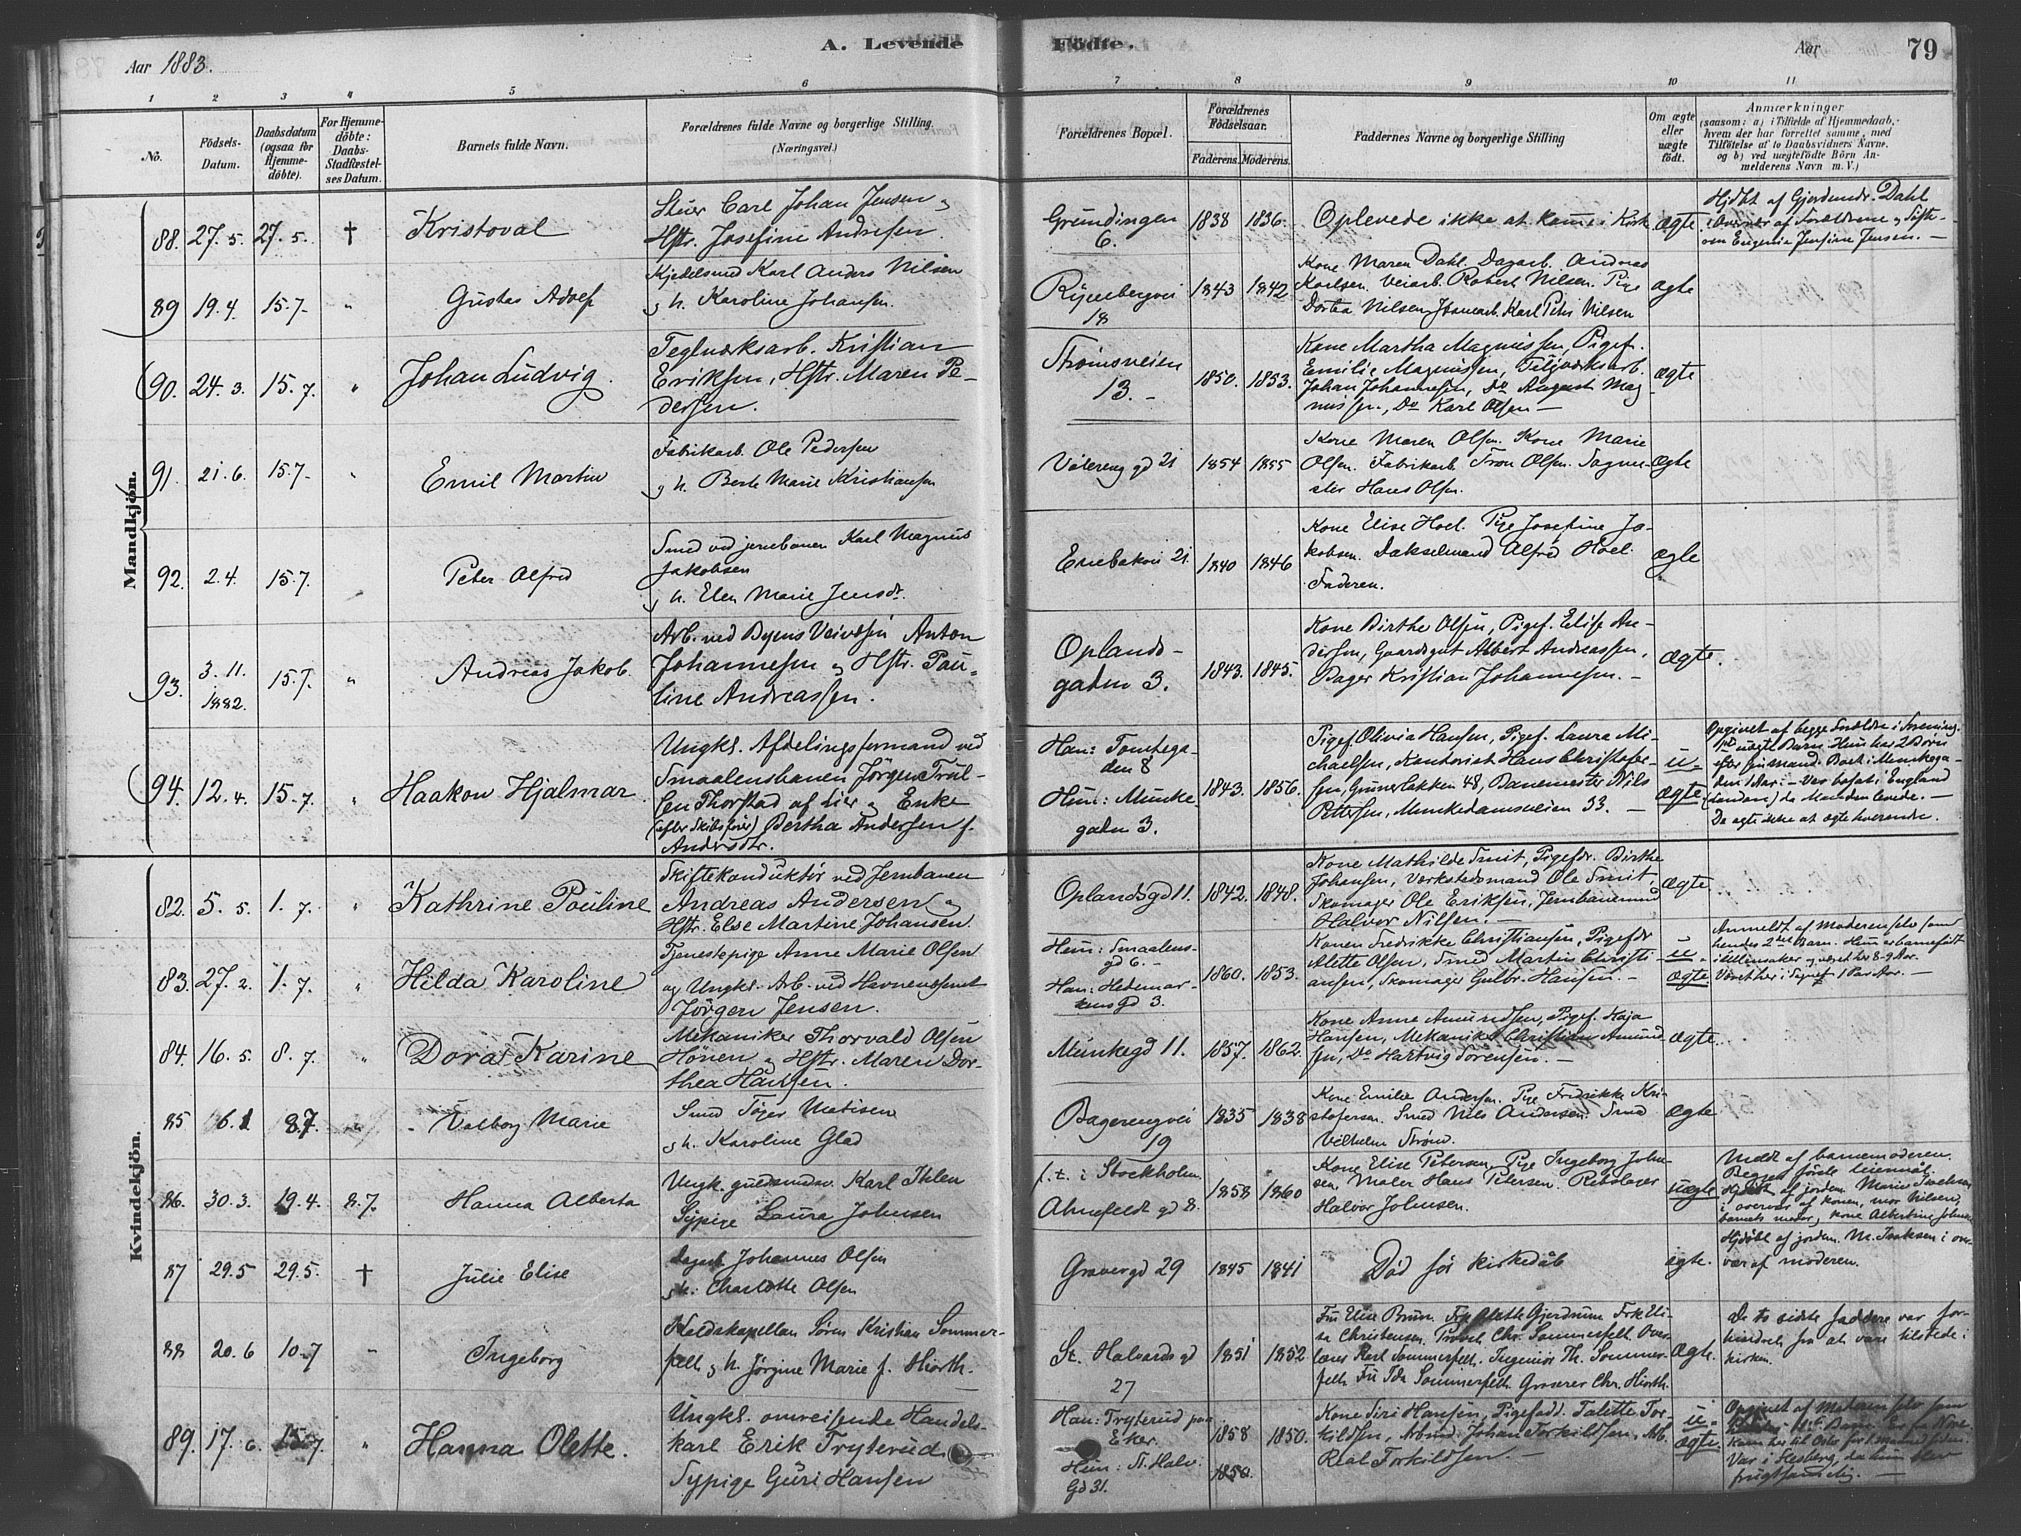 Aar 1883.
A. Levende
Födte.
Aar
79
1
2
3
4
5
6
7
8
9
10
11
No.
Födsels-
Datum.
Daabsdatum
(ogsaa for
Hjemme-
döbte).
For Hjemme-
döbte:
Daabs-
Stadfæstel-
ses Datum.
Barnets fulde Navn.
Forældrenes fulde Navne og borgerlige Stilling.
(Næringsvei.)
Forældrenes Bopæl.
Forældrenes
Födselsaar.
Faderens.
Moderens.
Faddernes Navne og borgerlige Stilling
Om ægte
eller
uægte
födt.
Anmærkninger
(saasom: a) i Tilfælde af Hjemmedaab,
hvem der har forrettet samme, med
Tilföielse af to Daabsvidners Navne,
og b) ved uægtefödte Börn An-
melderens Navn m. V.)
Mandkjön.
88. 27.5. 27.5. † Kristoval
Stuer Carl Johan Jensen
Hstr. Josefine Andresen
Grundingen
6.
1838 1836.
Oplevede ikke at komme i Kirke
ægte
Hjdbt af Gjordemdr. Dahl
i Overvær af Forældrene
om Eugenia Jensine Jensen.
89 19.4. 15.7. "
Gustav Adolf
Kjedelsmed Karl Anders Nilsen
g h. Karoline Johansen
18
1843 1842
Kone Maren Dahl. Dagarb. Andreas
Karlsen. Veiarb. Robert Nilsen. Pige
Dortea Nilsen. Karl Peter Nilsen
ægte
90. 24.3. 15.7. "
Johan Ludvig.
Teglværksarb. Kristian
Eriksen, Hstr. Maren Pe-
dersen.
Strömsveien
13.
1850. 1853.
Kone Martha Magnussen, Pigef.
Emilie Magnussen,
Johan Johannesen, Do August Mag-
nussen, Do Karl Olsen
ægte
91. 21.6. 15.7. "
Emil Martin
Fabrikarb. Ole Pedersen
g h. Berte Marie Kristiansen
Vålereng gd 21
1854 1855
Kone Maren Olsen. Kone Marie
Olsen. Fabrikarb. Tron Olsen. Sagme-
ster Hans Olsen.
ægte
92. 2.4. 15.7.
Peter Alfred
Smed ved jernbanen Karl Magnus
Jakobsen
g h. Elen Marie Jensdr.
Enebakvei 21.
1840 1846
Kone Elise Hoel. Pige Josefine Ja-
kobsen. Alfred Hoel.
Faderen.
ægte
93. 3.11.
1882. 15.7. "
Andreas Jakob.
Arb. ved Byens Veivæsen Anton
Johannesen og Hstr. Pau-
line Andreassen.
Oplands-
gaden 3.
1843. 1845.
Kone Birthe Olsen, Pigef. Elise An-
dersen, Gaardsgut Albert Andreassen,
Bager Kristian Johannesen.
ægte.
94. 12.4. 15.7. "
Haakon Hjalmar
Ungkl. Afdelingsformand ved
Smaalensbanen Jörgen Trul-
sen Thorstad af Lier og Enke
Bertha Andersen f.
Andersdtr.
Han: Tomtega-
den 8
Hun: Munke
gaden 3.
1843. 1856.
Pigef. Olivia Hansen, Pigef. Laura Mi-
chaelsen, Kontorist Hans Christofer-
sen, Grünerlökken 48, Banemester Nils
Pettersen, Munkedamsveien 33.
u-
ægte
Opgivet af begge Forældre i Forening.
1ste uægte Barn. Hun har 2 Börn
efter sin mand. Boet i Munkega-
den 1 Aar. Var bosat i England
(London) da Manden levede.
De agte ikke at ægte hverandre.
Kvindekjön.
82. 5.5. 1.7. "
Kathrine Pouline
Skiftekonduktör ved Jernbanen
Andreas Andersen og
Hstr. Else Martine Johansen.
Oplandsgd 11.
1842. 1848.
Kone Mathilde Smit, Pigefdr. Birthe
Johansen, Værkstedsmand Ole Smit,
Skomager Ole Eriksen, Jernbanemand
Halvor Nilsen.
ægte
83. 27.2. 1.7. "
Hilda Karoline
Tjenestepige Anne Marie Olsen
og Ungkl. Arb. ved Havnevæsenet
Jörgen Jensen.
Hun: Smaalens-
gd 6.
Han: Hedemar-
kens Gd 3.
1860. 1853.
Konen Fredrikke Christiansen, Pigefdr
Alette Olsen, Smed Martin Christi-
ansen, Skomager Gulbr. Hansen.
u-
ægte.
Anmeldt af Moderen selv som
hendes 2det Barn. Hun er barnefödt
i Ullensaker og været her 8-9 Aar.
84. 16.5. 8.7. "
Dora Karine
Mekaniker Thorvald Olsen
Hönen og Hstr. Maren Dor-
thea Hansen.
Munkegd 11.
1857. 1862.
Kone Anne Amundsen, Pigef. Kaja
Hansen, Mekaniker Christian Amund-
sen, Do Hartvig Sorensen.
ægte.
85 16.1 8.7.
Valborg Marie
Smed Töger Matisen
g h. Karoline Glad
Bagerengvei
19
1835 1838
Kone Emilie Andersen. Pige Fredrikke Kri-
stofersen. Smed Nils Andersen. Smed
Vilhelm Ström.
ægte
86. 30.3. 19.4. 8.7.
Hanna Alberta
Ungk. guldsmedsv. Karl Ihlen
Sypige Laura Johnsen
f.t. i Stockholm.
Ahnefeldt gd 8.
1858 1860
Kone Elise Petersen. Pige Ingeborg John-
sen. Maler Hans Petersen. Rebslager
Halvor Johnsen.
uægte
Meldt af barnemoderen.
Begges förste leiermål.
Hjdöbt af jordem. Marie Isaksen
i overvær af konen, mor Nilsen,
barnets moder, kone Albertine Johnsen
87 29.5 29.5. †
Julie Elise
Dagarb. Johannes Olsen
g h. Charlotte Olsen
Gravergd 29
1845 1841
Död för kirkedåb
ægte.
Hjdöbt af jordem. M. Isaksen i over-
vær af moderen.
88 20.6 10.7 "
Ingeborg
Kaldskapellan Sören Kristian Sommer-
felt g h. Jörgine Marie f. Hiorth.
St. Halvards gd
27
1851 1852
Fru Elisa Bruun. Gjerdrum Frk Eli-
sa Christensen. Provst Chr. Sommerfelt Over-
lærer Karl Sommerfelt. Ingeniör Th. Sommer-
felt Fru Ida Sommerfelt Grosserer Chr. Hiorth.
ægte.
De to sidste faddere var for-
hindret fra at være tilstede i
kirken.
89. 17.6. 15.7. "
Hanna Olette.
Ungkl. omreisende Handels-
karl Erik Tryterud
Sypige Guri Hansen
Han: Tryterud paa
Eker.
Hun: St. Halv.
Gd 31.
1858 1850.
1850.
Kone Siri Hansen, Pigefadd. Talette Tor-
kildsen, Arbmd. Johan Torkildsen, Arb.
Real Torkildsen.
u-
ægte.
Opgivet af Moderen selv som
Var i Hesberg, da hun blev
frugtsommelig.